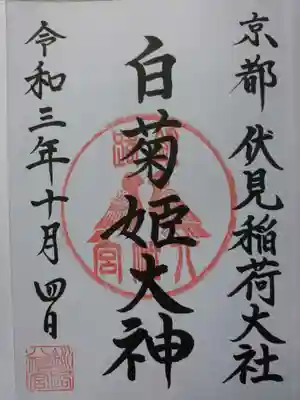 京都 伏見稲荷大社
白菊姫大神
令和三年十月四日